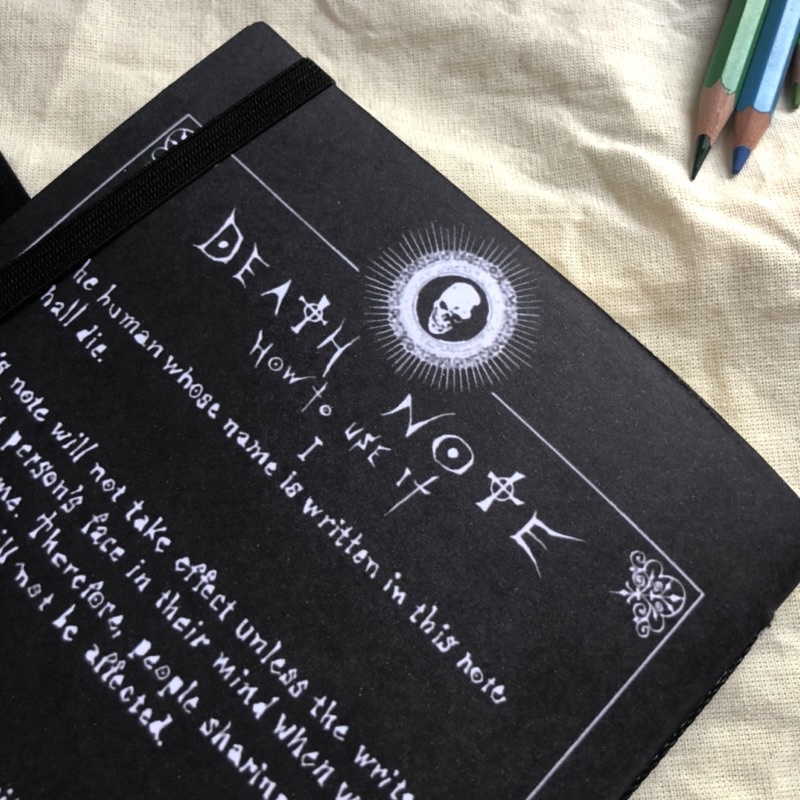 DEATH NOTE
How to use it
I
he human whose name is written in this note
hall die.
is note will not take effect unless the write
person's face in their mind when w
me. Therefore, people sharing
ill not be affected.